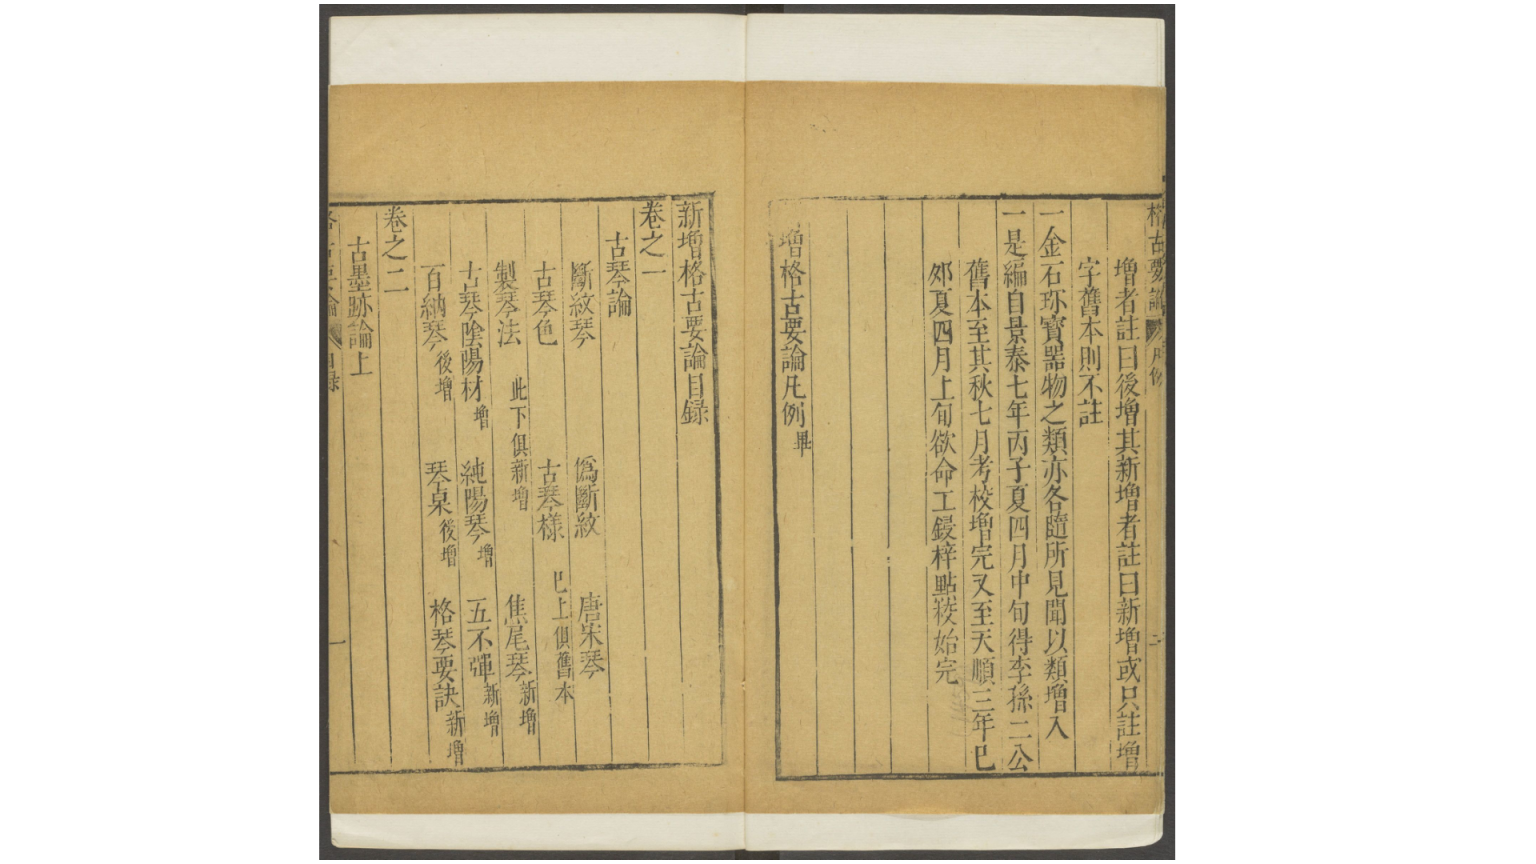 格古要論 凡例 二
增者註曰後增其新增者註曰新增或只註增
字舊本則不註
一金石珎寶器物之類亦各隨所見聞以類增入
一是編自景泰七年丙子夏四月中旬得李孫二公
舊本至其秋七月考校增完又至天順三年已
夘夏四月上旬欲命工鋟梓點校始完
增格古要論凡例畢
新增格古要論目録
卷之一
古琴論
斷紋琴 僞斷紋 唐宋琴
古琴色 古琴様 已上俱舊本
製琴法 此下俱新增 焦尾琴 新增
古琴隂陽材 增 純陽琴 增 五不彈 新增
百納琴 後增 琴桌 後增 格琴要訣 新增
卷之二
古墨跡論上
格古要論 目録 一